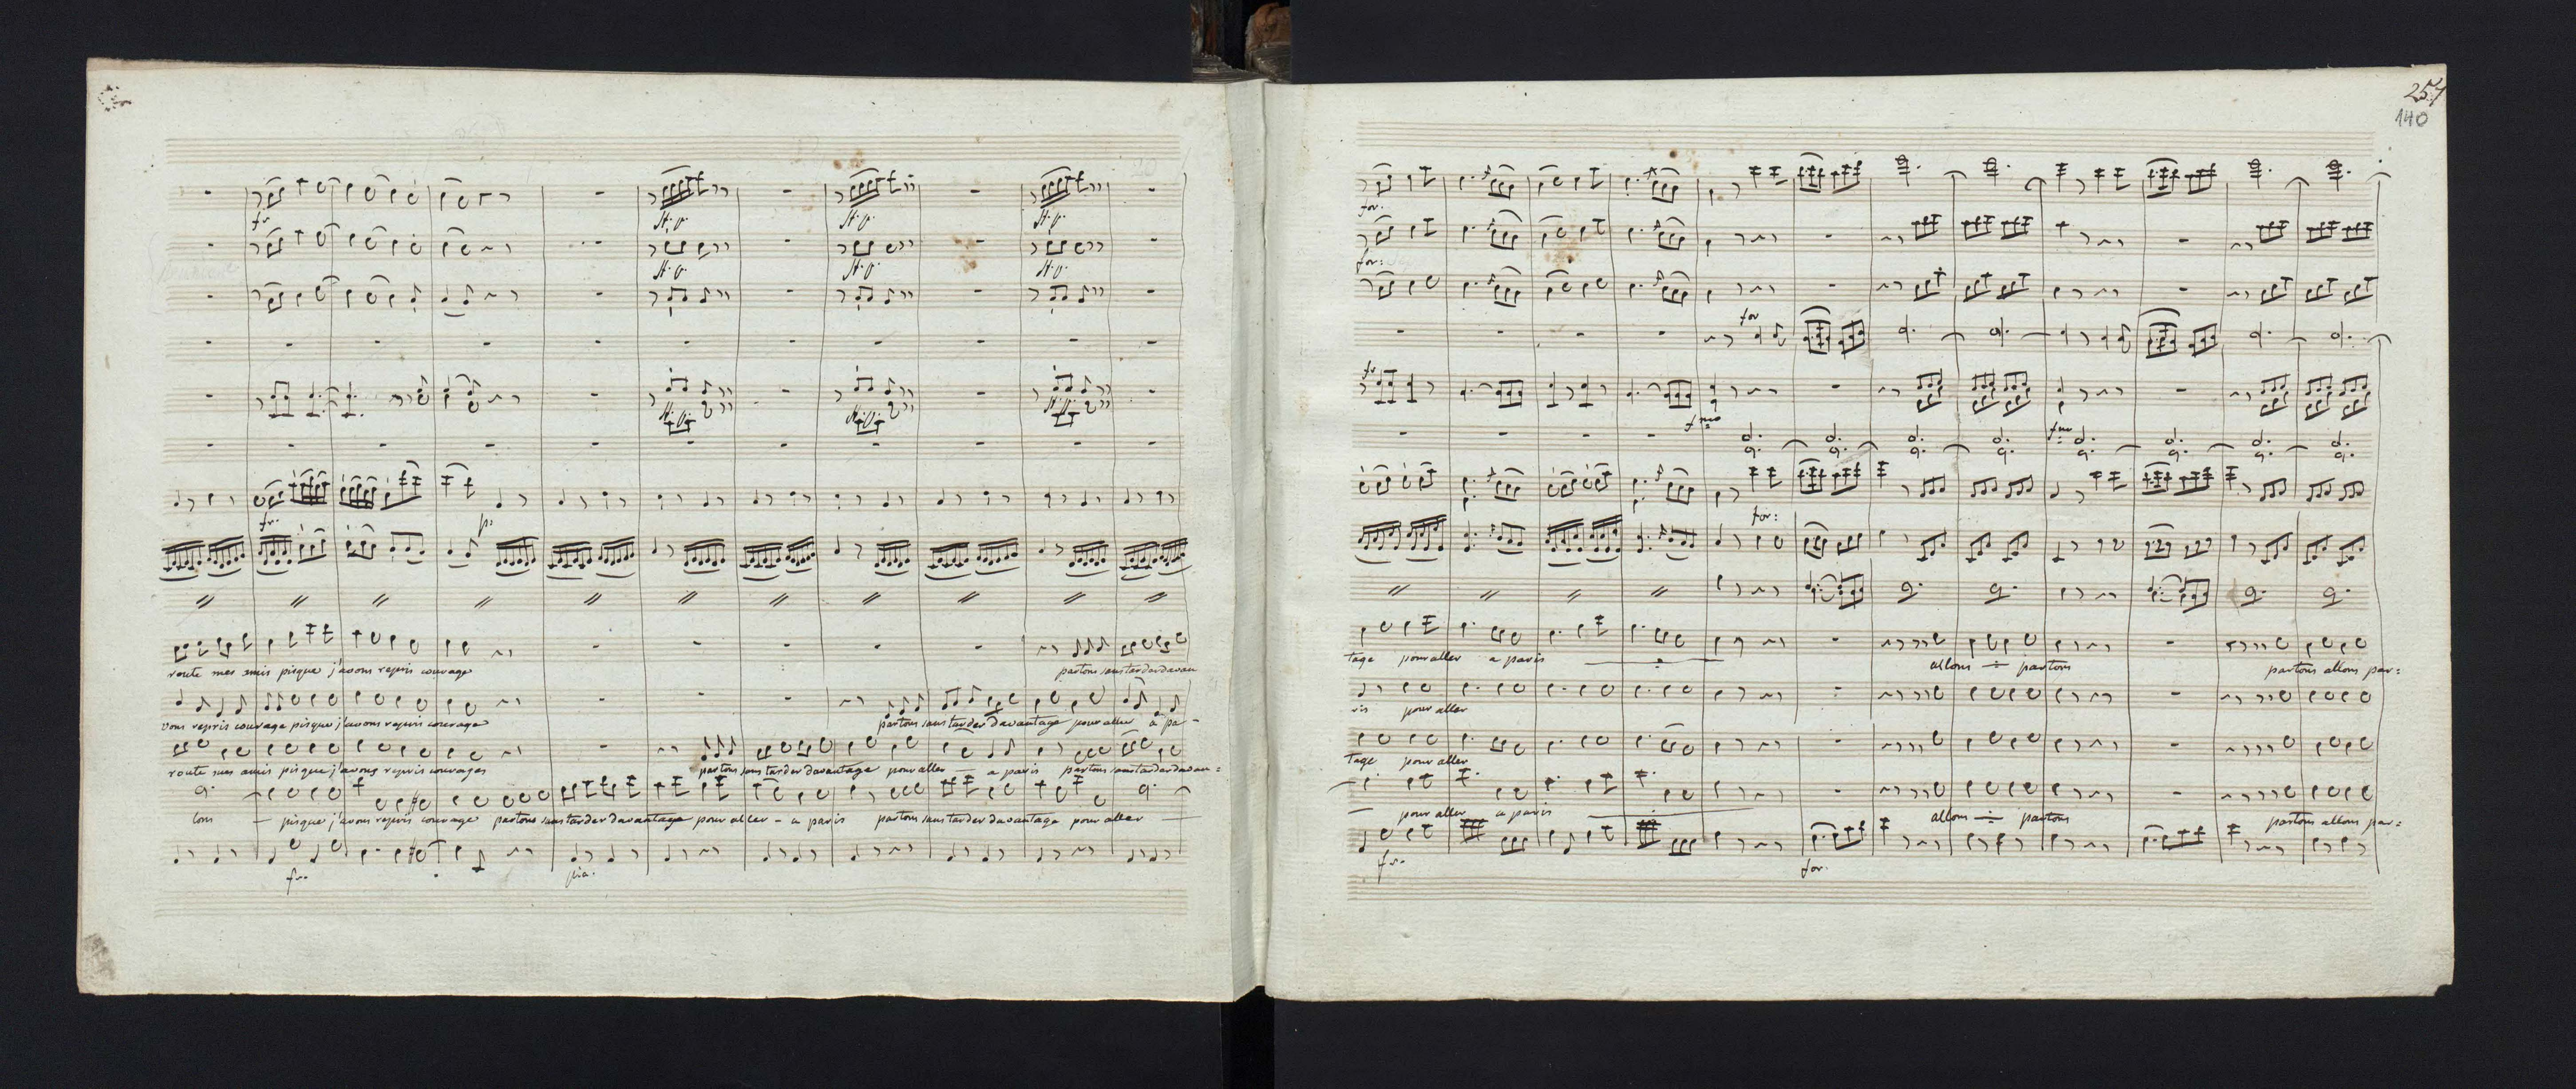 fr
fr.
p.
route mes amis pisque j'avons repris courage
partons sans tarder davan
vons repris courage pisque j'avons repris courage
partons sans tarder davantage pour aller à pa-
route mes amis pisque j'avons repris courages
partons sans tarder davantage pour aller a paris partons sans tarder davan=
lons pisque j'avons repris courage partons sans tarder davantage pour aller - a paris partons sans tarder davantage pour aller
fr.
pia.
257
140
for.
for:
for
fr
fmo
fmo
for:
tage pour aller a paris
allons partons
partons allons par=
ris pour aller
tage pour aller
pour aller a paris
allons partons
partons allons par=
fr.
for.